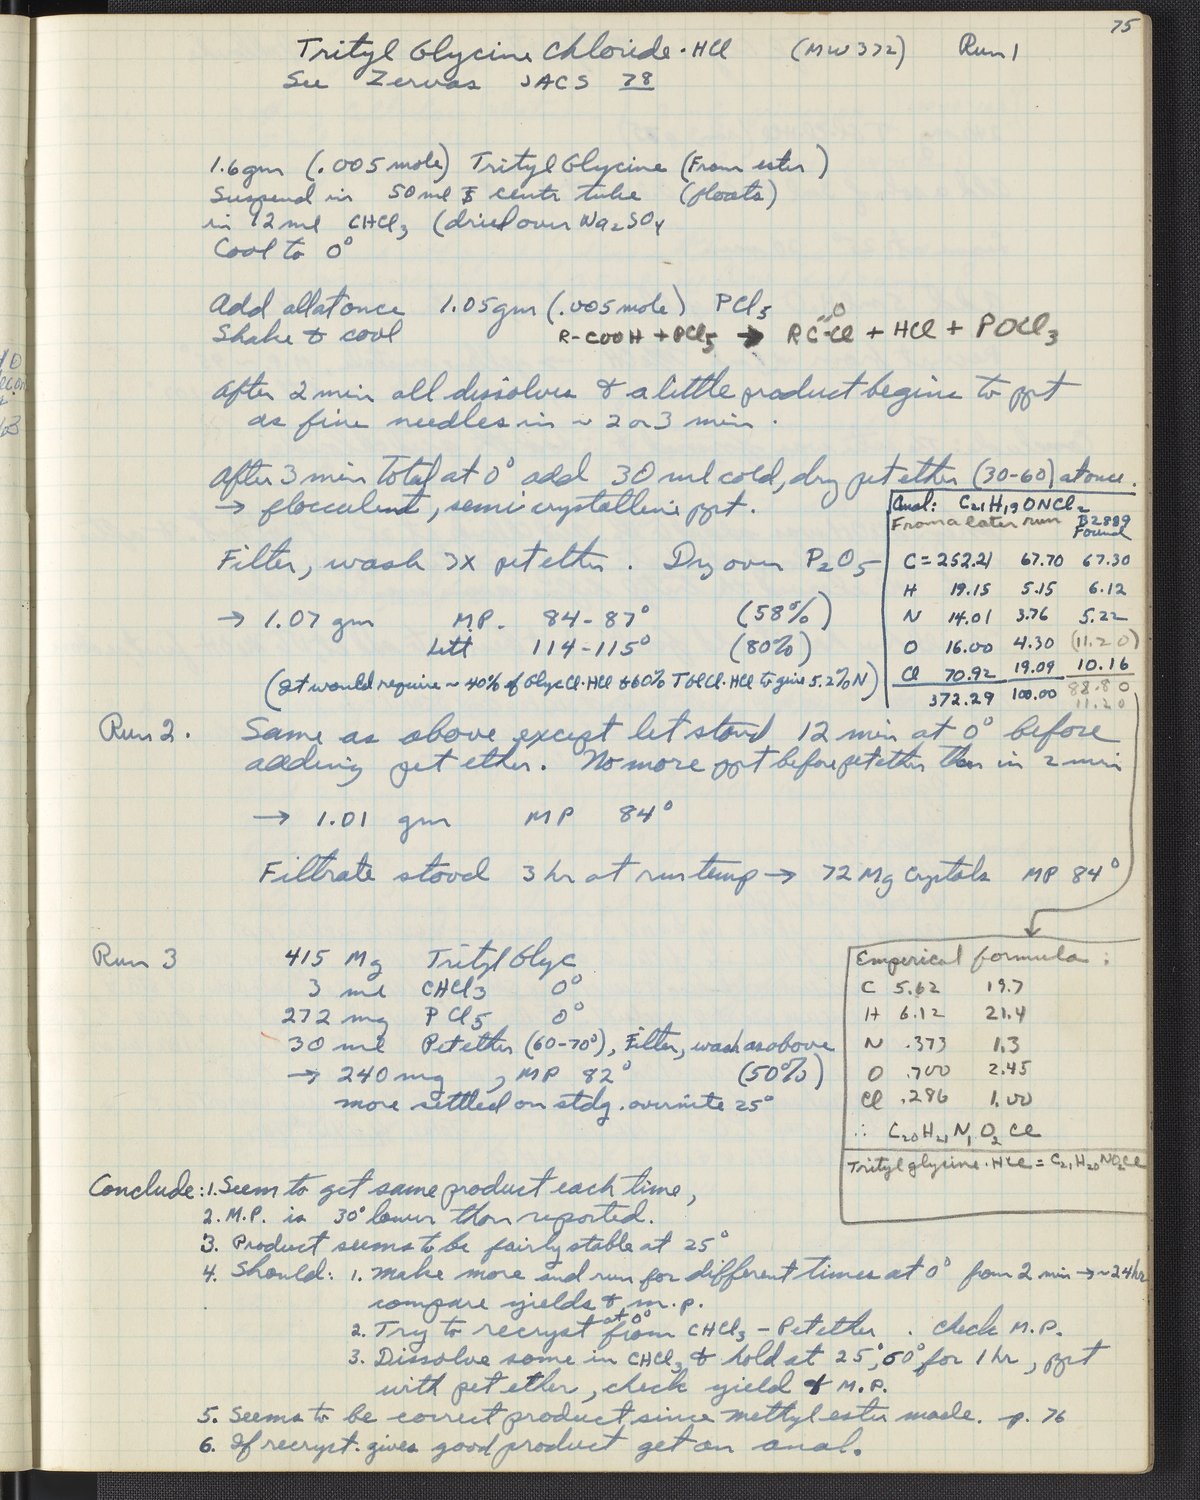 75
Trityl Glycine Chloride·HCl (MW 372) Run 1
See Zervas JACS 78
1.6 gm (.005 mole) Trityl Glycine (From ester)
Suspend in 50 ml centr tube (floats)
in 12 ml CHCl3 (dried over Na2SO4
Cool to 0°
Add all at once 1.05 gm (.005 mole) PCl5
Shake & cool R-COOH + PCl5 → RC=O-Cl + HCl + POCl3
After 2 min all dissolves & a little product begins to ppt
as fine needles in ~ 2 or 3 min.
After 3 min total at 0° add 30 ml cold, dry pet ether (30-60) at once.
→ flocculent, semi crystalline ppt.
Filter, wash 3X pet ether. Dry over P2O5
→ 1.07 gm M.P. 84-87° (58%)
Litt 114-115° (80%)
(It would require ~ 40% of GlyCl·HCl & 60% TGlCl·HCl to give 5.2% N)
Anal: C21H19ONCl2
From a later run B2889 Found
C = 252.21 67.70 67.30
H 19.15 5.15 6.12
N 14.01 3.76 5.22
O 16.00 4.30 (11.20)
Cl 70.92 19.09 10.16
372.29 100.00 88.80
11.20
Run 2. Same as above except let stand 12 min at 0° before
adding pet ether. No more ppt before pet ether than in 2 min
→ 1.01 gm MP 84°
Filtrate stood 3 hr at rm temp → 72 Mg Crystals MP 84°
Run 3 415 Mg Trityl Glyc
3 ml CHCl3 0°
272 mg PCl5 0°
30 ml Pet ether (60-70°), Filter, wash as above
→ 240 mg, MP 82° (50%)
more settled on stdg. overnite 25°
Emperical formula:
C 5.62 19.7
H 6.12 21.4
N .373 1.3
O .700 2.45
Cl .286 1.00
∴ C20H21N1O2Cl
Trityl glycine·HCl = C21H20NO2Cl
Conclude: 1. Seem to get same product each time,
2. M.P. is 30° lower than reported.
3. Product seems to be fairly stable at 25°
4. Should: 1. Make more and run for different times at 0° from 2 min → ~24 hr
compare yields & m.p.
2. Try to recryst at 0° from CHCl3 - Pet ether. Check M.P.
3. Dissolve some in CHCl3 & hold at 25°, 60° for 1 hr, ppt
with pet ether, check yield & M.P.
5. Seems to be correct product since methyl ester made. p. 76
6. If recryst. gives good product get an anal.